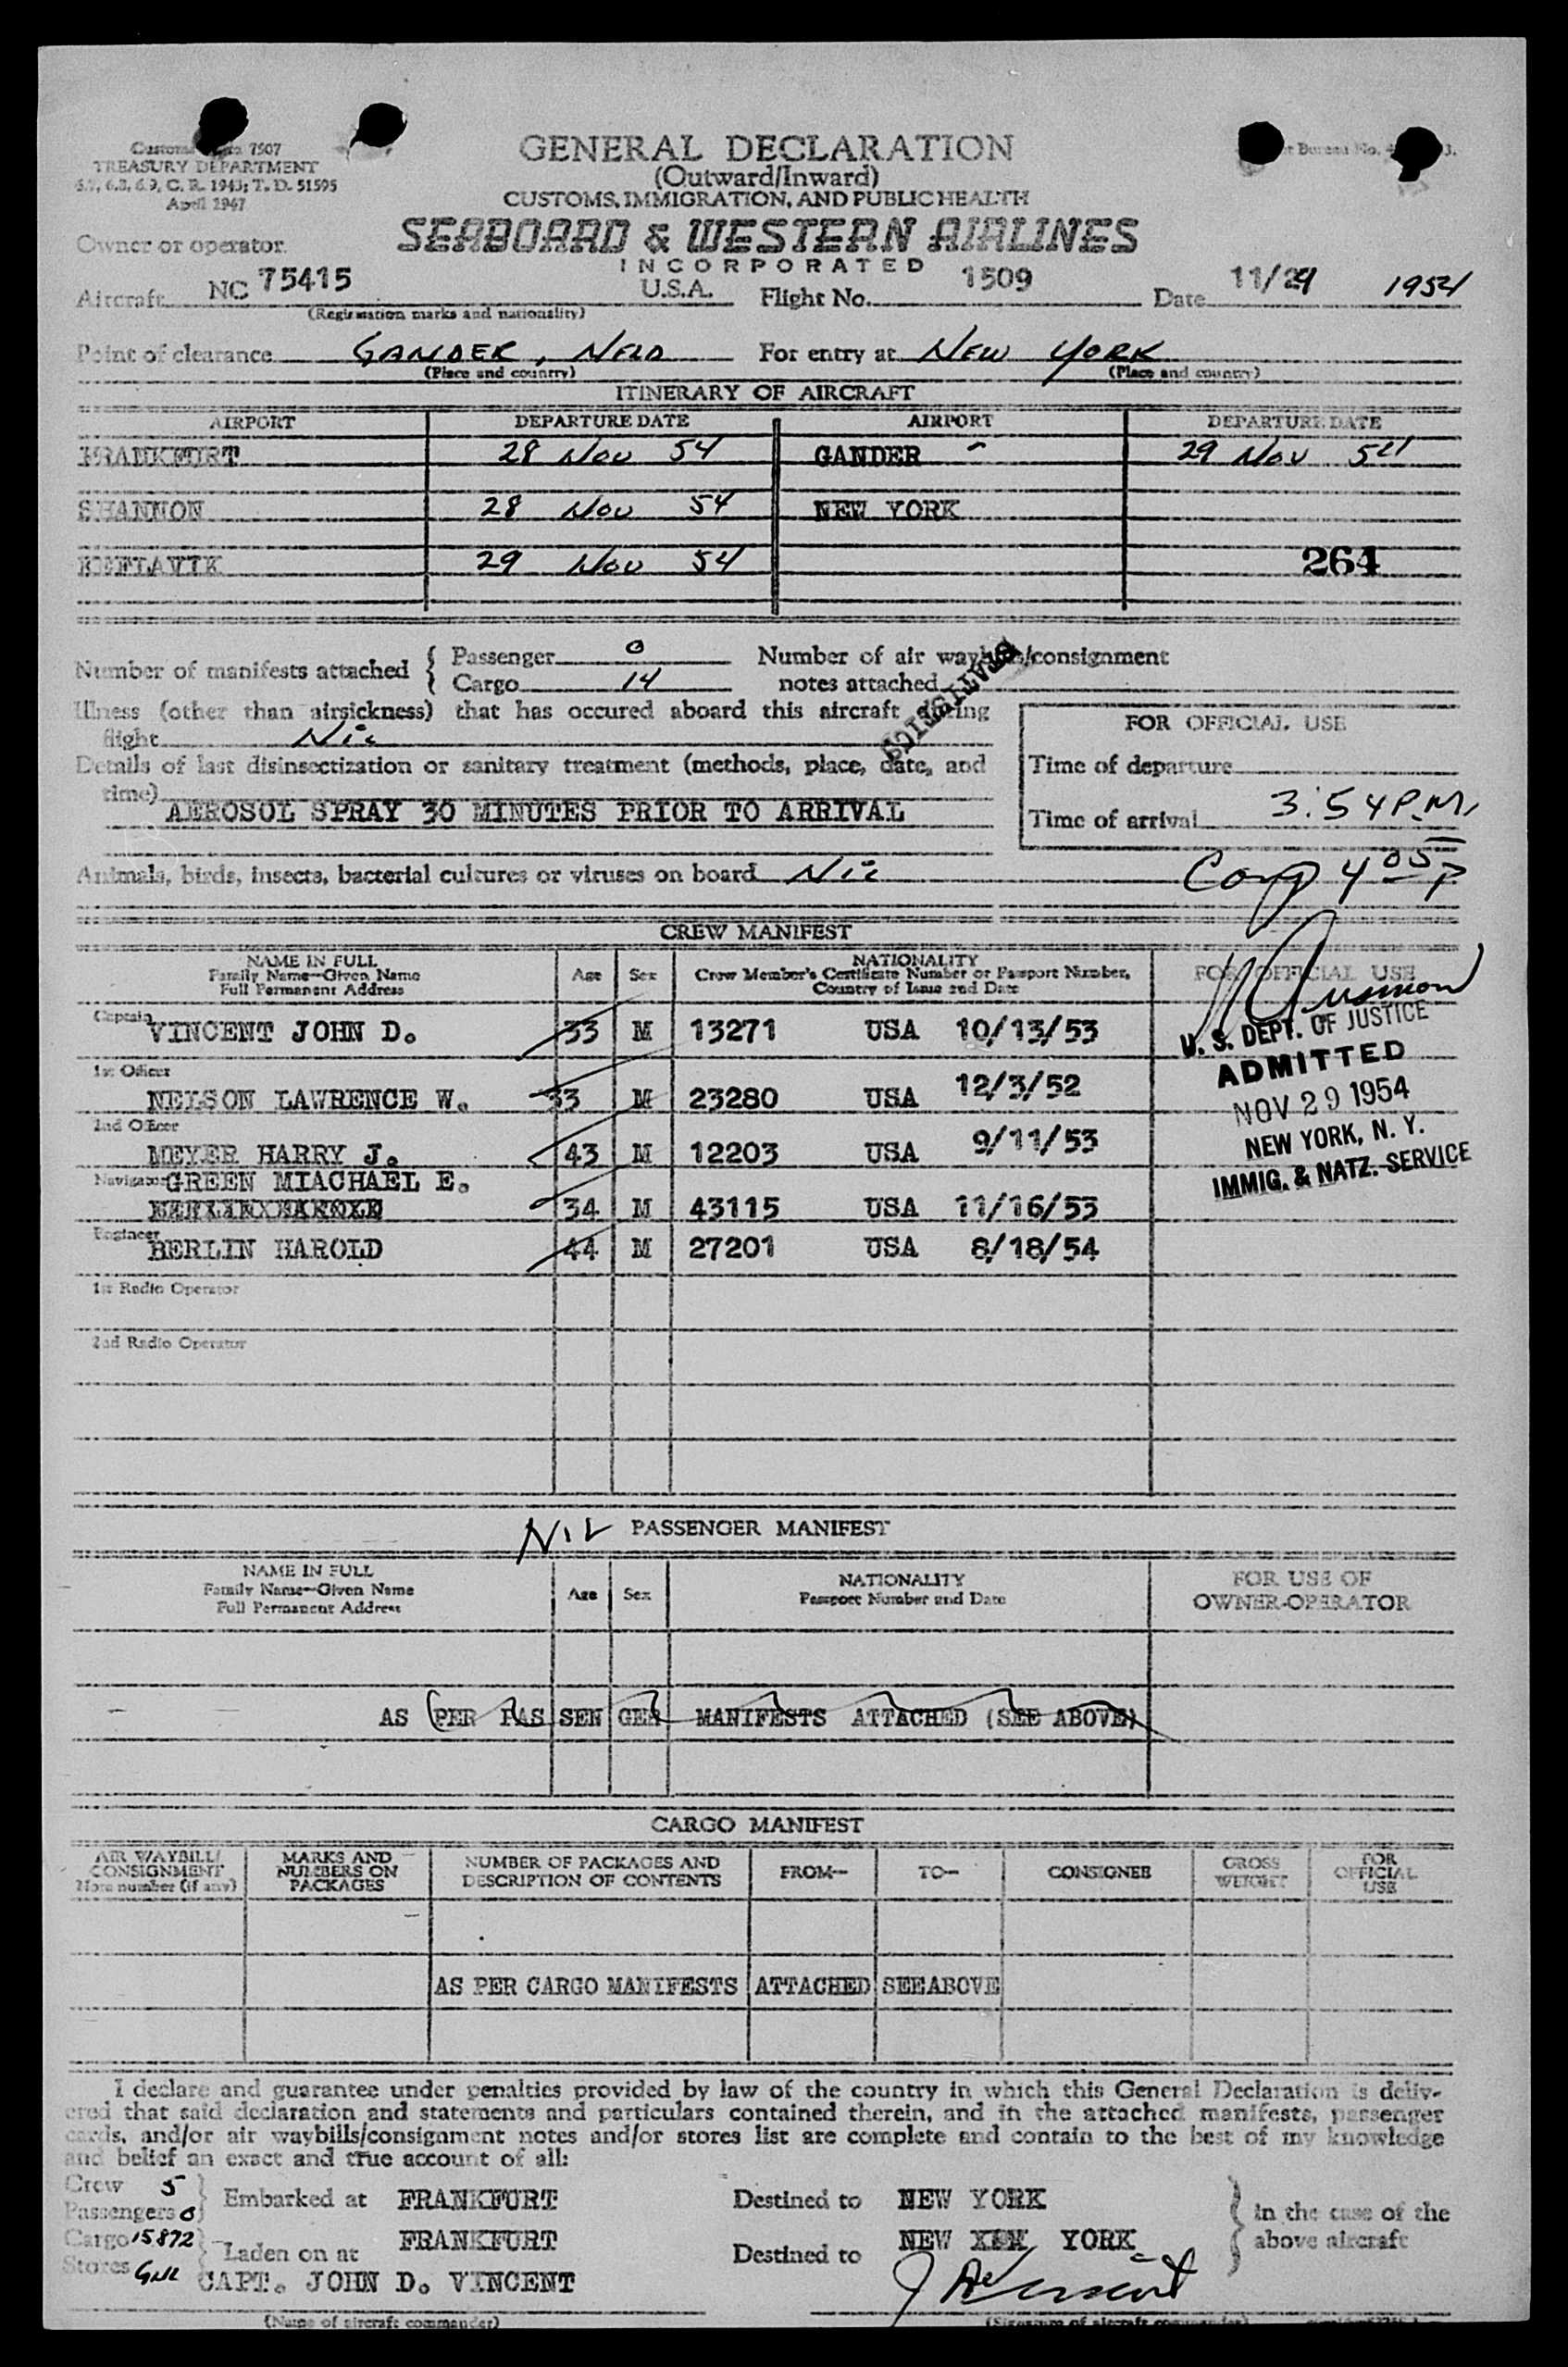 Customs 7507
TREASURY DEPARTMENT
6.7, 6.8, 6.9, C. R. 1943; T. D. 51595
April 1947
GENERAL DECLARATION
(Outward/Inward)
CUSTOMS, IMMIGRATION, AND PUBLIC HEALTH
Bureau No.
Owner or operator
SEABOARD & WESTERN AIRLINES
INCORPORATED
Aircraft NC 75415 U.S.A. Flight No. 1509 Date 11/29 1954
(Registration marks and nationality)
Point of clearance GANDER, NFLD For entry at NEW YORK
(Place and country) (Place and country)
ITINERARY OF AIRCRAFT
AIRPORT DEPARTURE DATE AIRPORT DEPARTURE DATE
FRANKFURT 28 Nov 54 GANDER 29 Nov 54
SHANNON 28 Nov 54 NEW YORK
KEFLAVIK 29 Nov 54 264
Number of manifests attached { Passenger 0
Cargo 14
Number of air waybills/consignment
notes attached
Illness (other than airsickness) that has occured aboard this aircraft during
flight Nil
Details of last disinsectization or sanitary treatment (methods, place, date, and
time)
AEROSOL SPRAY 30 MINUTES PRIOR TO ARRIVAL
FOR OFFICIAL USE
Time of departure
Time of arrival 3:54 P.M.
Animals, birds, insects, bacterial cultures or viruses on board Nil
4 05 P
CREW MANIFEST
NAME IN FULL
Family Name—Given Name
Full Permanent Address
Age
Sex
NATIONALITY
Crew Member's Certificate Number or Passport Number,
Country of Issue and Date
FOR OFFICIAL USE
Captain VINCENT JOHN D. 33 M 13271 USA 10/13/53
1st Officer
NELSON LAWRENCE W. 33 M 23280 USA 12/3/52
2nd Officer
MEYER HARRY J. 43 M 12203 USA 9/11/53
Navigator GREEN MIACHAEL E.
34 M 43115 USA 11/16/53
Engineer BERLIN HAROLD 44 M 27201 USA 8/18/54
1st Radio Operator
2nd Radio Operator
U. S. DEPT. OF JUSTICE
ADMITTED
NOV 29 1954
NEW YORK, N. Y.
IMMIG. & NATZ. SERVICE
NIL PASSENGER MANIFEST
NAME IN FULL
Family Name—Given Name
Full Permanent Address
Age
Sex
NATIONALITY
Passport Number and Date
FOR USE OF
OWNER-OPERATOR
AS PER PAS SEN GER MANIFESTS ATTACHED (SEE ABOVE)
CARGO MANIFEST
AIR WAYBILL/
CONSIGNMENT
Note number (if any)
MARKS AND
NUMBERS ON
PACKAGES
NUMBER OF PACKAGES AND
DESCRIPTION OF CONTENTS
FROM—
TO—
CONSIGNEE
GROSS
WEIGHT
FOR
OFFICIAL
USE
AS PER CARGO MANIFESTS ATTACHED SEE ABOVE
I declare and guarantee under penalties provided by law of the country in which this General Declaration is deliv-
ered that said declaration and statements and particulars contained therein, and in the attached manifests, passenger
cards, and/or air waybills/consignment notes and/or stores list are complete and contain to the best of my knowledge
and belief an exact and true account of all:
Crew 5
Passengers 0 } Embarked at FRANKFURT Destined to NEW YORK
Cargo 15872
Stores } Laden on at FRANKFURT Destined to NEW YORK
} in the case of the
above aircraft
CAPT. JOHN D. VINCENT
(Name of aircraft commander) (Signature of aircraft commander)